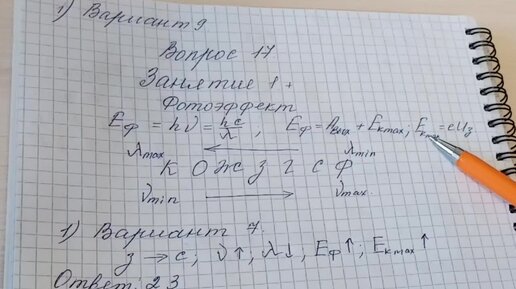 1) Вариант 9
Вопрос 17
Занятие 1+
Фотоэффект
Eф = hν = hc/λ, Eф = Aвых + Eкmax; Eкmax = eUз
λmax ← λmin
К О Ж З Г С Ф
νmin → νmax.
1) Вариант 7.
з → с, ν↑, λ↓, Eф↑, Eкmax↑
Ответ: 23